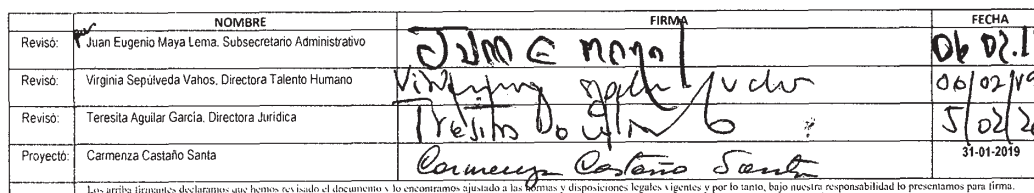 NOMBRE FIRMA FECHA
Revisó: Juan Eugenio Maya Lema. Subsecretario Administrativo
Revisó: Virginia Sepúlveda Vahos. Directora Talento Humano 06/02/19
Revisó: Teresita Aguilar García. Directora Jurídica 5/02/
Proyectó: Carmenza Castaño Santa Carmenza Castaño Santa 31-01-2019
Los arriba firmantes declaramos que hemos revisado el documento y lo encontramos ajustado a las normas y disposiciones legales vigentes y por lo tanto, bajo nuestra responsabilidad lo presentamos para firma.